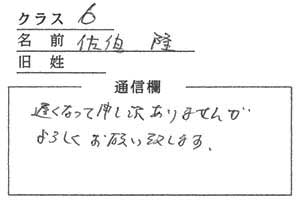 クラス 6
名前 佐伯 隆
旧姓
通信欄
遅くなって申し訳ありませんが
よろしくお願い致します。